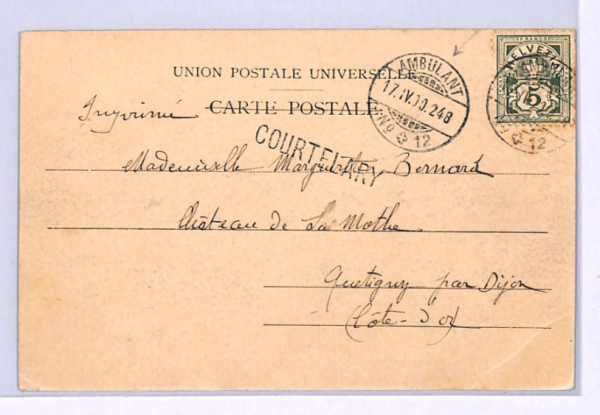 FRANCO
HELVETIA
5
UNION POSTALE UNIVERSELLE
AMBULANT
17.IV.00.248
12
12
Imprimé CARTE POSTALE
COURTELARY
Mademoiselle Marguerite Bernard
Château de La Mothe
Quetigny par Dijon
(Côte-d'or)